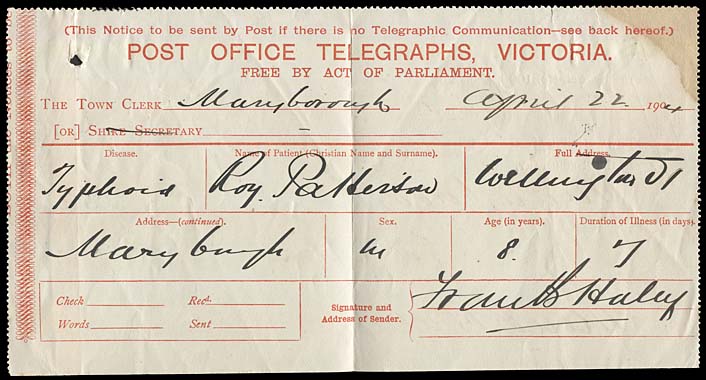 (This Notice to be sent by Post if there is no Telegraphic Communication—see back hereof.)
POST OFFICE TELEGRAPHS, VICTORIA.
FREE BY ACT OF PARLIAMENT.
THE TOWN CLERK Maryborough April 22 1904
[OR] SHIRE SECRETARY –
Disease. Name of Patient (Christian Name and Surname). Full Address.
Typhoid Roy. Patterson Wellington St
Address—(continued). Sex. Age (in years). Duration of Illness (in days).
Maryburgh M 8. 7
Check Recd.
Words Sent
Signature and
Address of Sender.
Haley